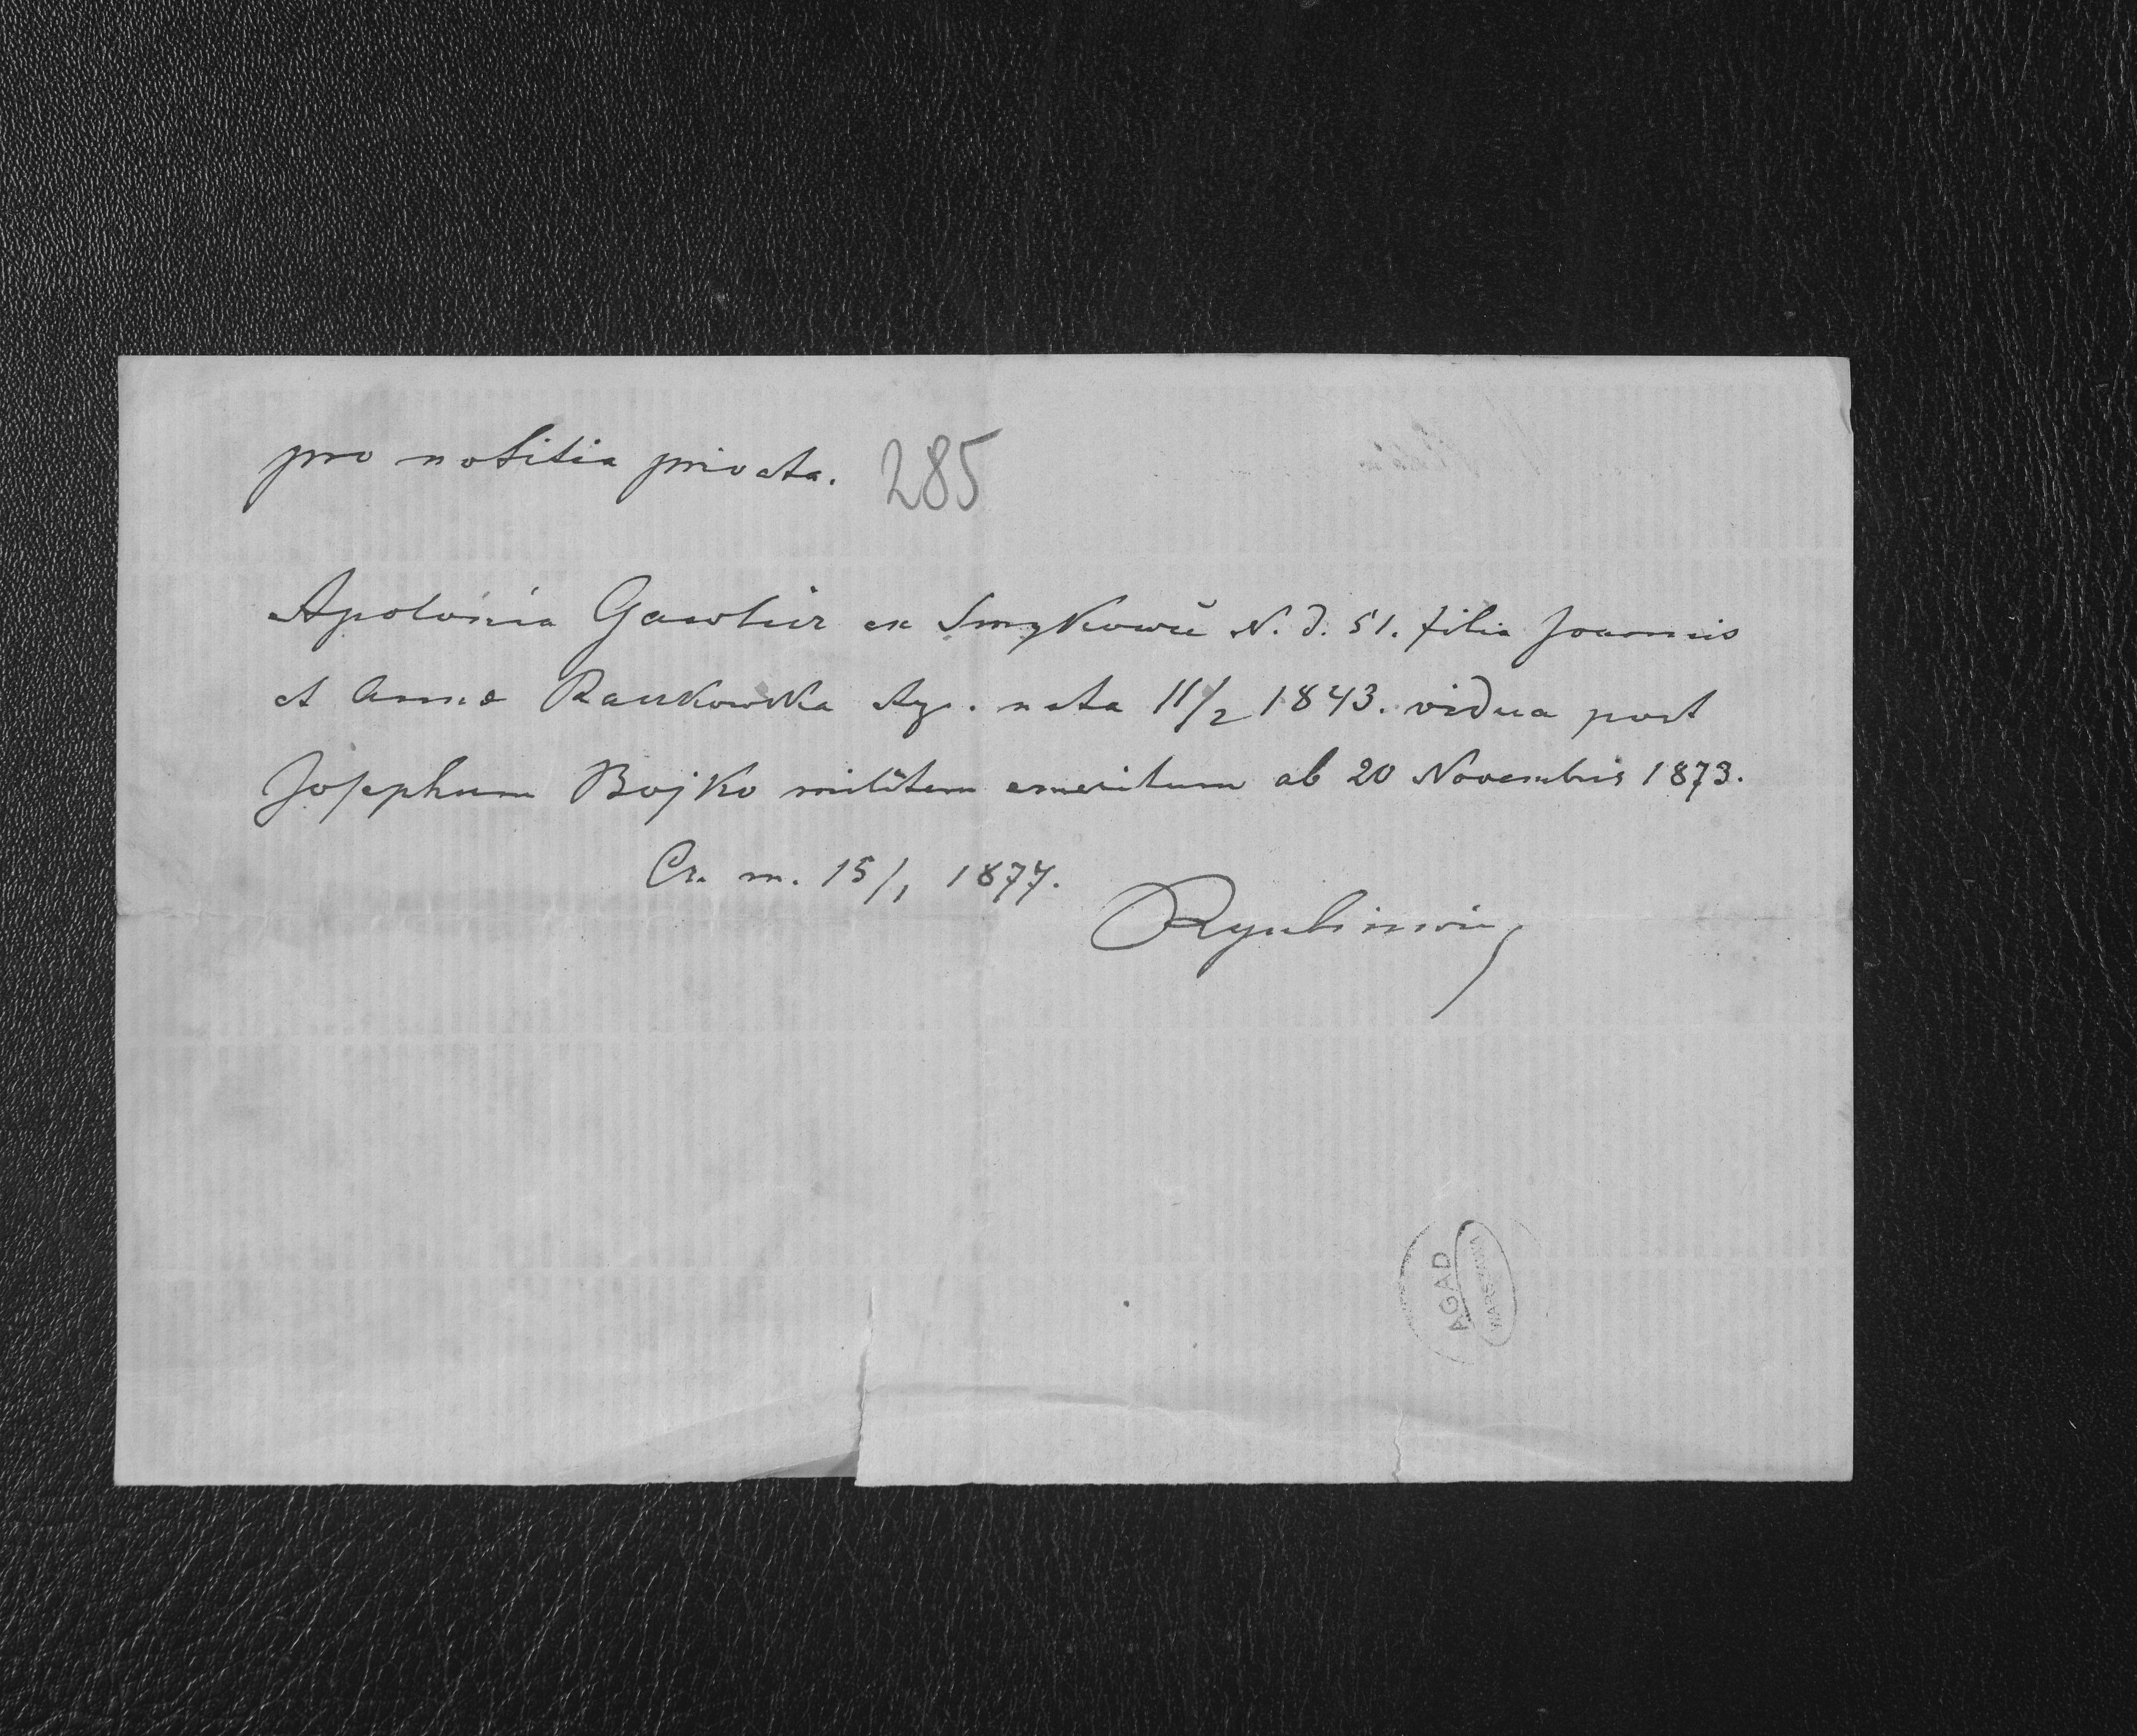 pro notitia privata. 285
Apolonia Gawlici ex Smykowce N. d. 51. filia Joannis
et Anna Rankowska Ag. nata 11/2 1843. vidua post
Josephum Bojko militem emeritum ab 20 Novembris 1873.
Cr. m. 15/1 1877.
AGAD
WARSZAWA